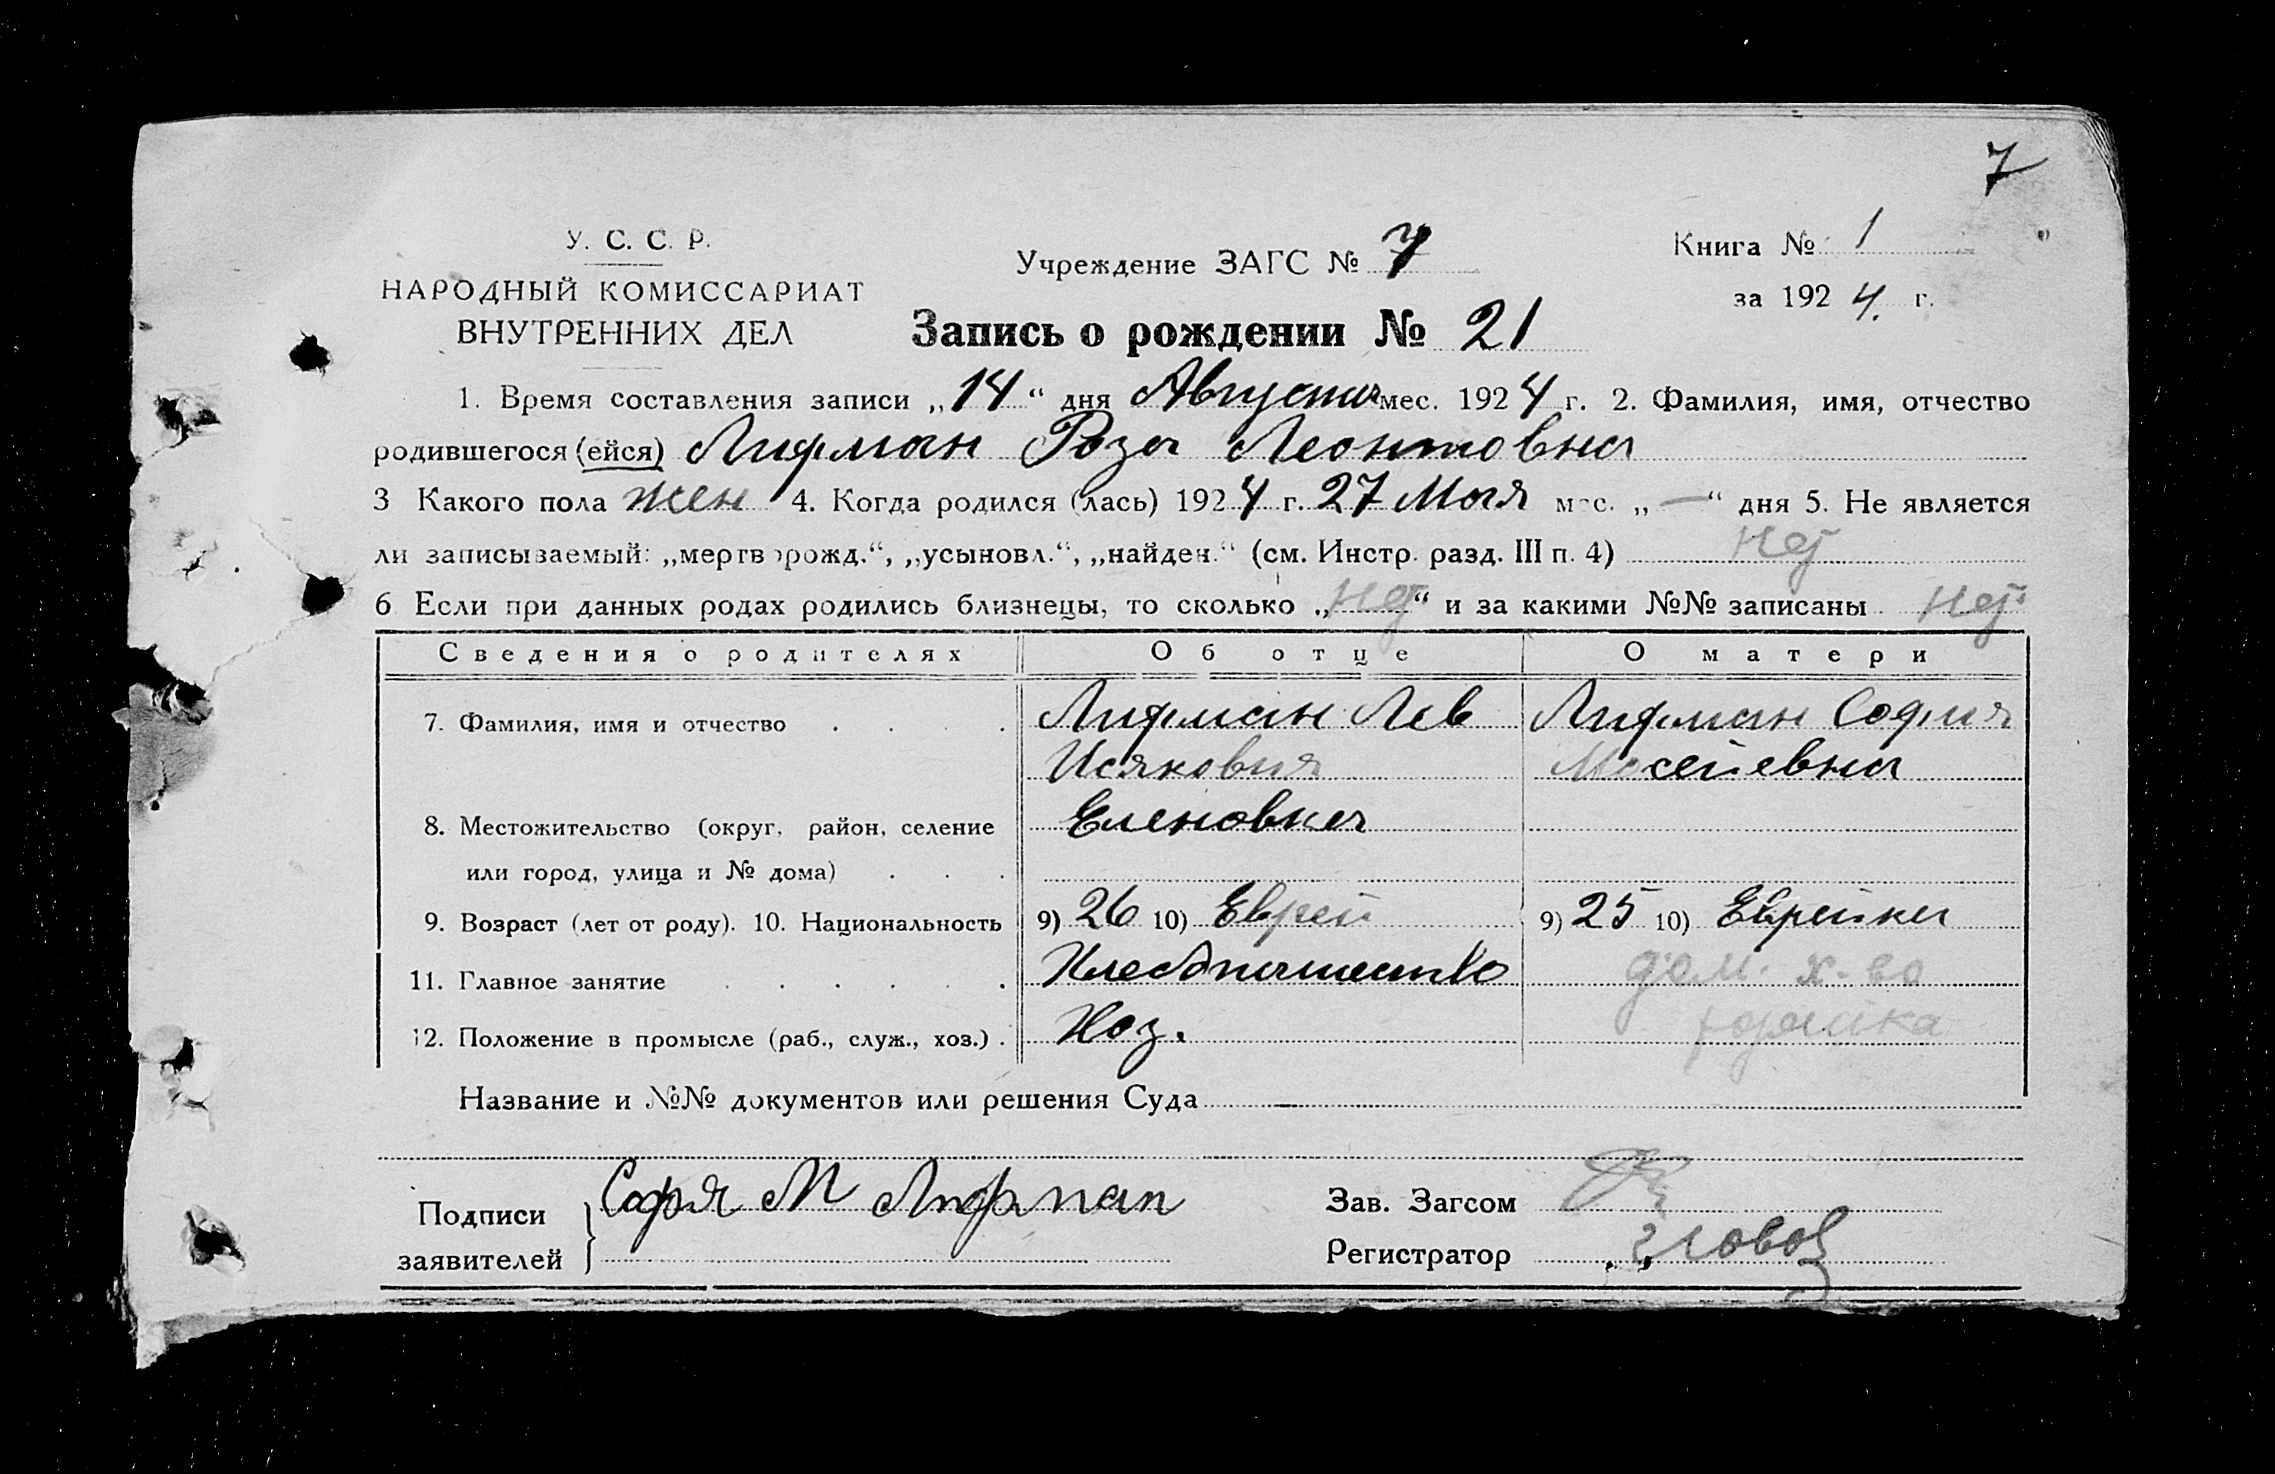 7
У. С. С. Р.
НАРОДНЫЙ КОМИССАРИАТ
ВНУТРЕННИХ ДЕЛ
Учреждение ЗАГС № 7
Книга № 1
за 1924 г.
Запись о рождении № 21
1. Время составления записи „14“ дня Августа мес. 1924 г. 2. Фамилия, имя, отчество
родившегося (ейся) Лифман Роза Леонтовна
3 Какого пола жен 4. Когда родился (лась) 1924 г. 27 Мая мес. „—“ дня 5. Не является
ли записываемый: „мертворожд.“, „усыновл.“, „найден.“ (см. Инстр. разд. III п. 4) Нет
6 Если при данных родах родились близнецы, то сколько „нет“ и за какими №№ записаны нет
Сведения о родителях Об отце О матери
7. Фамилия, имя и отчество Лифман Лев Лифман София
Исякович Мосеевна
8. Местожительство (округ, район, селение Еленовка
или город, улица и № дома)
9. Возраст (лет от роду). 10. Национальность 9) 26 10) Еврей 9) 25 10) Еврейка
11. Главное занятие Хлебопашество дом. х-во
12. Положение в промысле (раб., служ., хоз.) Хоз.
Название и №№ документов или решения Суда
Подписи
заявителей
Софя М Лифман
Зав. Загсом
Регистратор